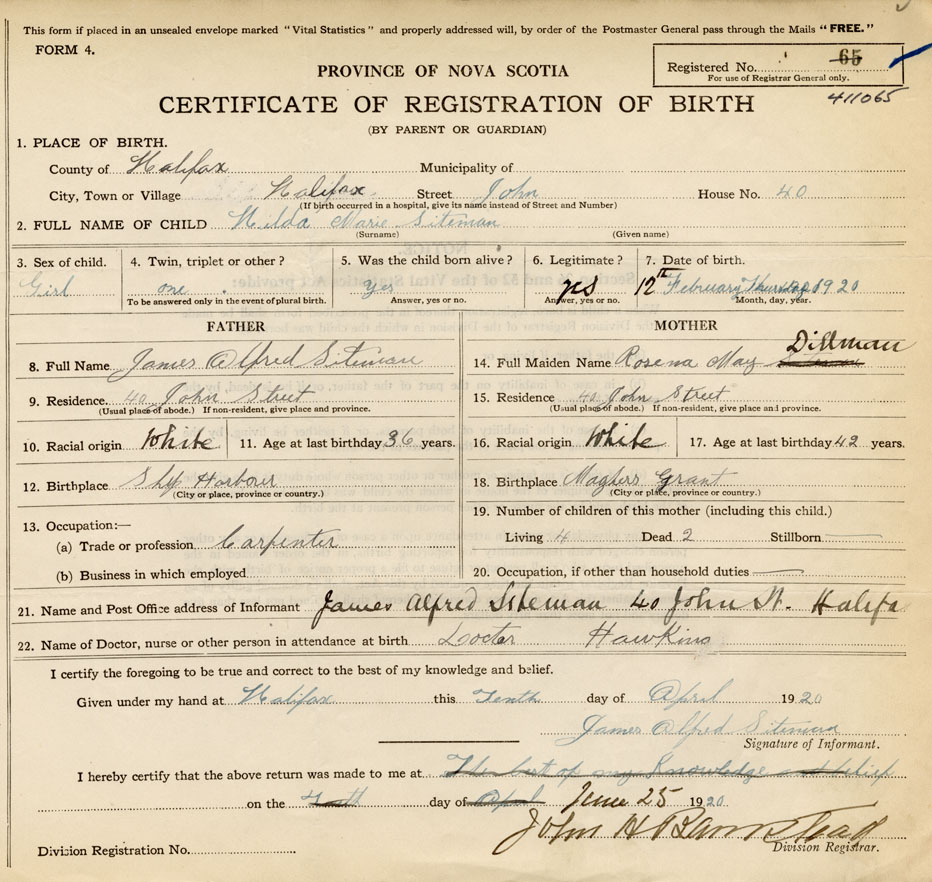 This form if placed in an unsealed envelope marked "Vital Statistics" and properly addressed will, by order of the Postmaster General pass through the Mails "FREE."
FORM 4.
Registered No. 65
For use of Registrar General only.
411065
PROVINCE OF NOVA SCOTIA
CERTIFICATE OF REGISTRATION OF BIRTH
(BY PARENT OR GUARDIAN)
1. PLACE OF BIRTH.
County of Halifax Municipality of
City, Town or Village Halifax Street John House No. 40
(If birth occurred in a hospital, give its name instead of Street and Number)
2. FULL NAME OF CHILD Hilda Marie Siteman
(Surname) (Given name)
3. Sex of child. 4. Twin, triplet or other? 5. Was the child born alive? 6. Legitimate? 7. Date of birth.
Girl one yes yes 12th February Thursday 1920
To be answered only in the event of plural birth. Answer, yes or no. Answer, yes or no. Month, day, year.
FATHER MOTHER
8. Full Name James Alfred Siteman
9. Residence. 40 John Street
(Usual place of abode.) If non-resident, give place and province.
10. Racial origin White 11. Age at last birthday 36 years.
12. Birthplace Ship Harbour
(City or place, province or country.)
13. Occupation:—
(a) Trade or profession Carpenter
(b) Business in which employed
14. Full Maiden Name Rosena May Dillman
15. Residence 40 John Street
(Usual place of abode.) If non-resident, give place and province.
16. Racial origin White 17. Age at last birthday 42 years.
18. Birthplace Maghers Grant
(City or place, province or country.)
19. Number of children of this mother (including this child.)
Living 4 Dead 2 Stillborn
20. Occupation, if other than household duties
21. Name and Post Office address of Informant James Alfred Siteman 40 John St. Halifa
22. Name of Doctor, nurse or other person in attendance at birth Docter Hawkins
I certify the foregoing to be true and correct to the best of my knowledge and belief.
Given under my hand at Halifax this Tenth day of April 1920
James Alfred Siteman
Signature of Informant.
I hereby certify that the above return was made to me at The best of my Knowledge and belief
on the Tenth day of April June 25 1920
John H Barnstead
Division Registrar.
Division Registration No.